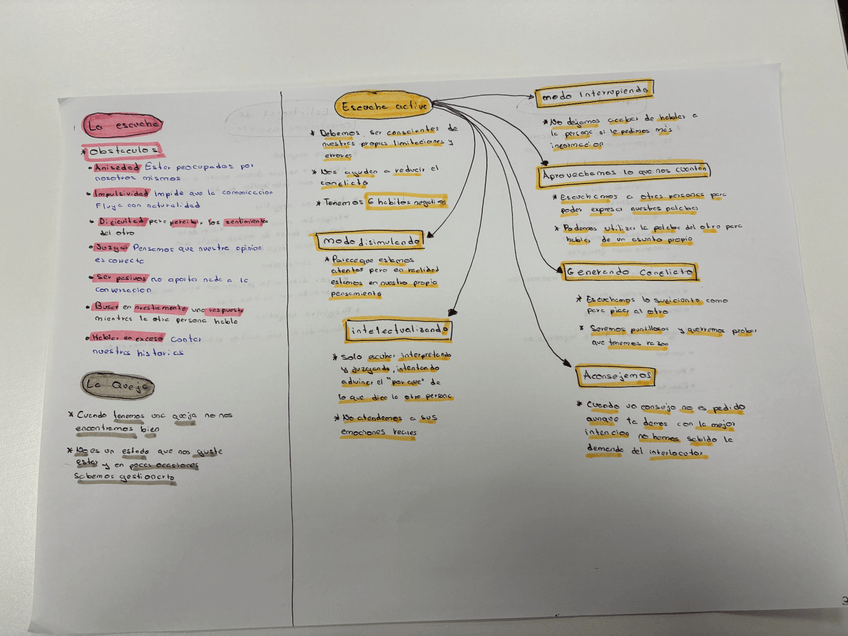 La escucha
* Obstaculos
• Ansiedad Estar preocupados por
nosotros mismos
• Impulsividad Impide que la comunicación
Fluya con naturalidad
• Dificultad para percibir los sentimientos
del otro
• Juzgar Pensamos que nuestra opinion
es correcta
• Ser pasivos no aporta nada a la
conversación
• Buscar en mentalmente una respuesta
mientras la otra persona habla
• Hablar en exceso Contar
nuestras historias
La Queja
* Cuando tenemos una queja no nos
encontramos bien
* No es un estado que nos guste
estar y en pocas ocasiones
sabemos gestionarlo
Escucha activa
* Debemos ser conscientes de
nuestras propias limitaciones y
errores
* Nos ayudan a reducir el
conflicto
* Tenemos 6 habitos negativos
modo disimulando
* Parece que estamos
atentos pero en realidad
estamos en nuestro propio
pensamiento
intelectualizando
* Solo acuhar interpretando
y juzgando, intentando
adivinar el "por que" de
lo que dice la otra persona
* No atendemos a sus
emociones reales
modo Interrupiendo
* No dejamos acabar de hablar a
la persona si le pedimos más
información
Aprovechamos lo que nos cuentan
* Escuchamos a otras personas para
poder expresar nuestras palabras
* Podemos utilizar la palabra del otro para
hablar de un asunto propio
Generando Conflicto
* Escuchamos lo suficiente como
para picar al otro
* Seremos puntillosos y querremos probar
que tenemos razon
Aconsejamos
* Cuando un consejo no es pedido
aunque te damos con la mejor
intencion no hemos sabido la
demanda del interlocutor
2